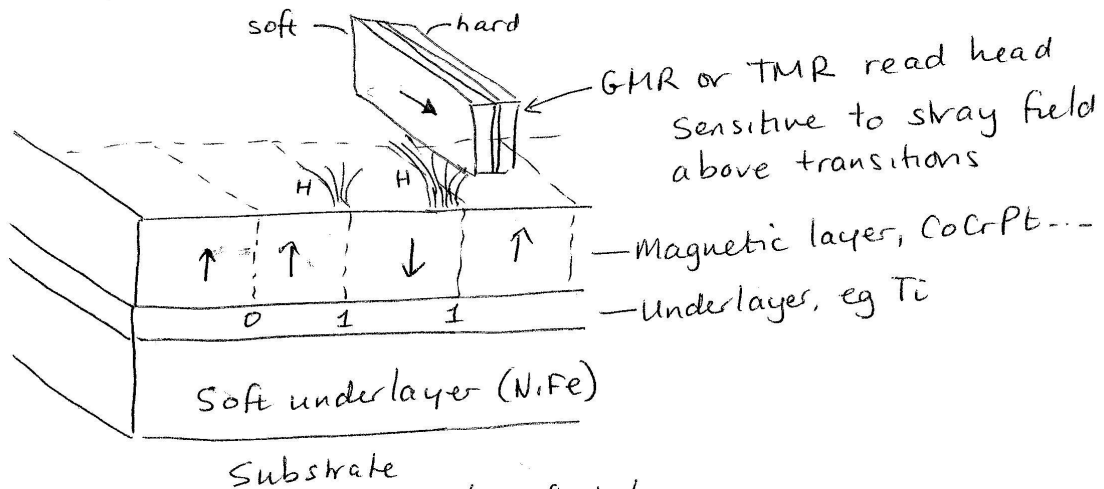 soft
hard
GMR or TMR read head
Sensitive to stray field
above transitions
H
H
Magnetic layer, CoCrPt---
Underlayer, eg Ti
0 1 1
Soft underlayer (NiFe)
Substrate